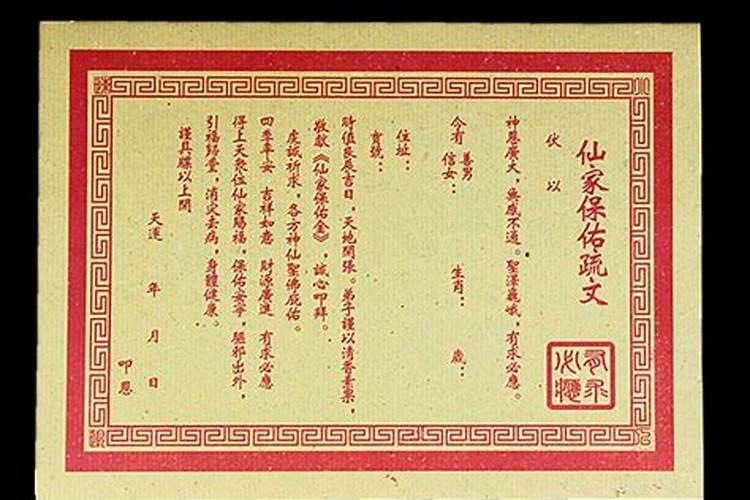 仙家保佑疏文
有求必應
伏以
神恩廣大，無感不通。聖澤巍峨，有求必應。
今有善男信女：　生肖：　歲：
住址：
寶號：
時值良辰吉日，天地開張。弟子謹以清香素菓，
敬獻《仙家保佑金》，誠心叩拜。
虔誠祈求，各方神仙聖佛庇佑。
四季平安　吉祥如意　財源廣進　有求必應
得上天眾位仙家賜福，保佑安寧，驅邪出外，
引福歸堂，消災去病，身體健康。
謹具牒以上聞
天運　年　月　日
叩恩